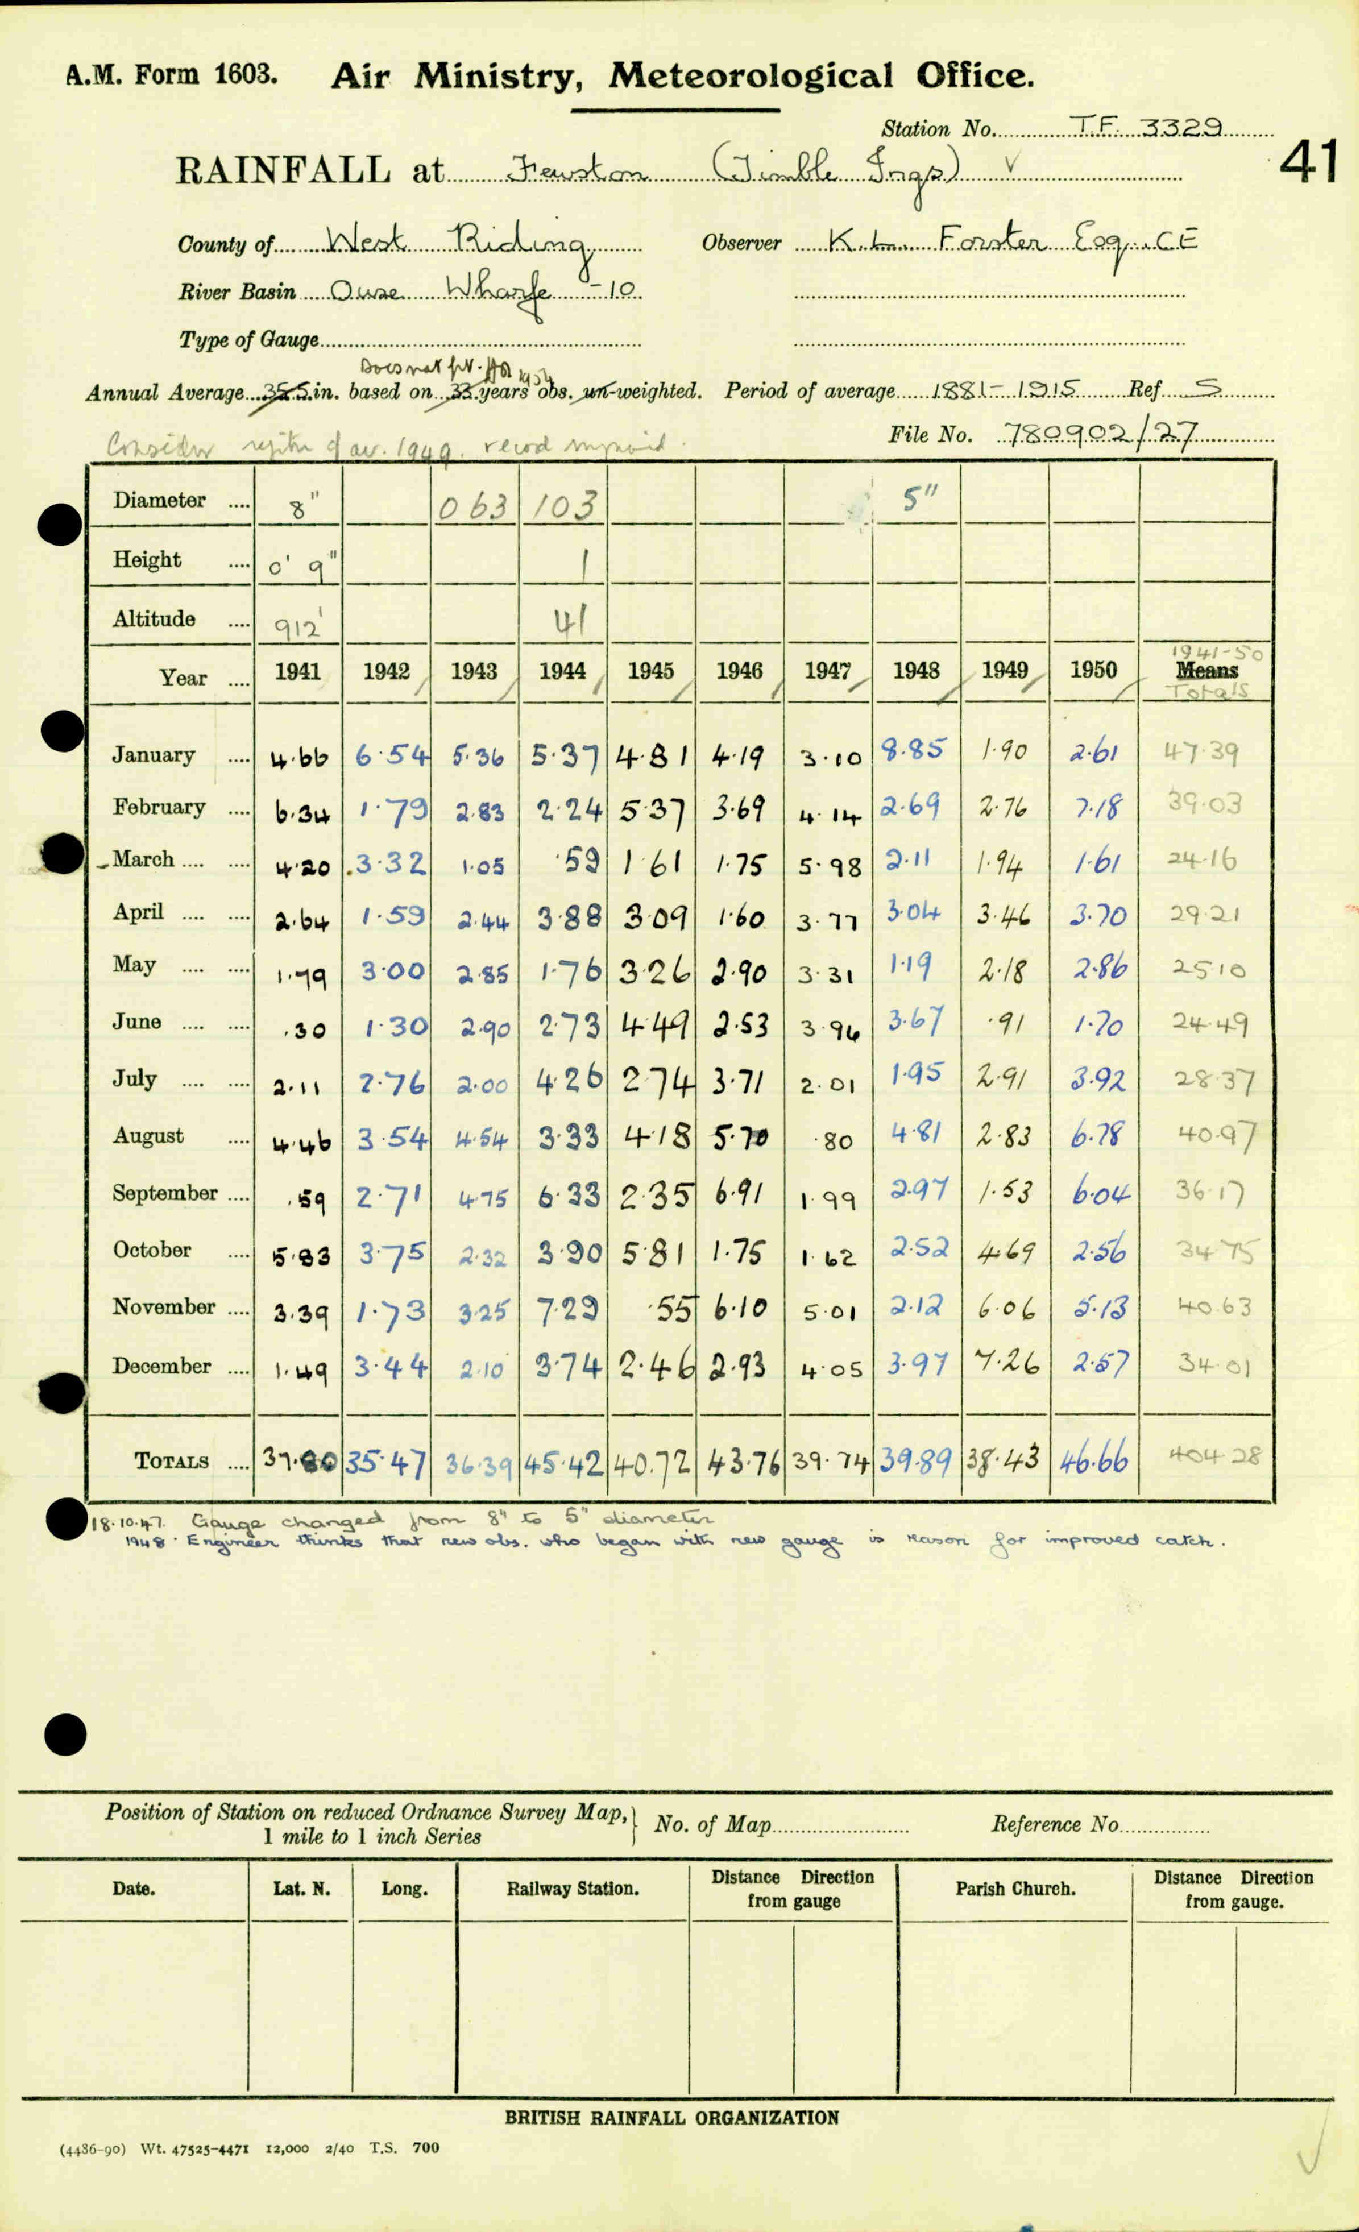 A.M. Form 1603. Air Ministry, Meteorological Office.
Station No. T.F. 3329
41
RAINFALL at Fewston (Timble Ings) √
County of West Riding Observer K.L. Forster Esq. CE
River Basin Ouse Wharfe - 10
Type of Gauge
Does not fit. 1954
Annual Average 35.5 in. based on 33 years obs. un-weighted. Period of average 1881-1915 Ref. S
File No. 780902/27
Consider av. 1949. record
Diameter .... 8" 063 103 5"
Height .... 0' 9" 1
Altitude .... 912' 41
1941-50
Year .... 1941 1942 1943 1944 1945 1946 1947 1948 1949 1950 Means
Totals
January .... 4.66 6.54 5.36 5.37 4.81 4.19 3.10 8.85 1.90 2.61 47.39
February .... 6.34 1.79 2.83 2.24 5.37 3.69 4.14 2.69 2.76 7.18 39.03
March .... .... 4.20 3.32 1.05 .59 1.61 1.75 5.98 2.11 1.94 1.61 24.16
April .... .... 2.64 1.59 2.44 3.88 3.09 1.60 3.77 3.04 3.46 3.70 29.21
May .... .... 1.79 3.00 2.85 1.76 3.26 2.90 3.31 1.19 2.18 2.86 25.10
June .... .... .30 1.30 2.90 2.73 4.49 2.53 3.96 3.67 .91 1.70 24.49
July .... .... 2.11 2.76 2.00 4.26 2.74 3.71 2.01 1.95 2.91 3.92 28.37
August .... 4.46 3.54 4.54 3.33 4.18 5.70 .80 4.81 2.83 6.78 40.97
September .... .59 2.71 4.75 6.33 2.35 6.91 1.99 2.97 1.53 6.04 36.17
October .... 5.83 3.75 2.32 3.90 5.81 1.75 1.62 2.52 4.69 2.56 34.75
November .... 3.39 1.73 3.25 7.29 .55 6.10 5.01 2.12 6.06 5.13 40.63
December .... 1.49 3.44 2.10 3.74 2.46 2.93 4.05 3.97 7.26 2.57 34.01
TOTALS .... 37.80 35.47 36.39 45.42 40.72 43.76 39.74 39.89 38.43 46.66 404.28
18.10.47. Gauge changed from 8" to 5" diameter
1948. Engineer thinks that new obs. who began with new gauge is reason for improved catch.
Position of Station on reduced Ordnance Survey Map, 1 mile to 1 inch Series } No. of Map Reference No.
Date. Lat. N. Long. Railway Station. Distance Direction from gauge Parish Church. Distance Direction from gauge.
BRITISH RAINFALL ORGANIZATION
(4436-90) Wt. 47525-4471 12,000 2/40 T.S. 700